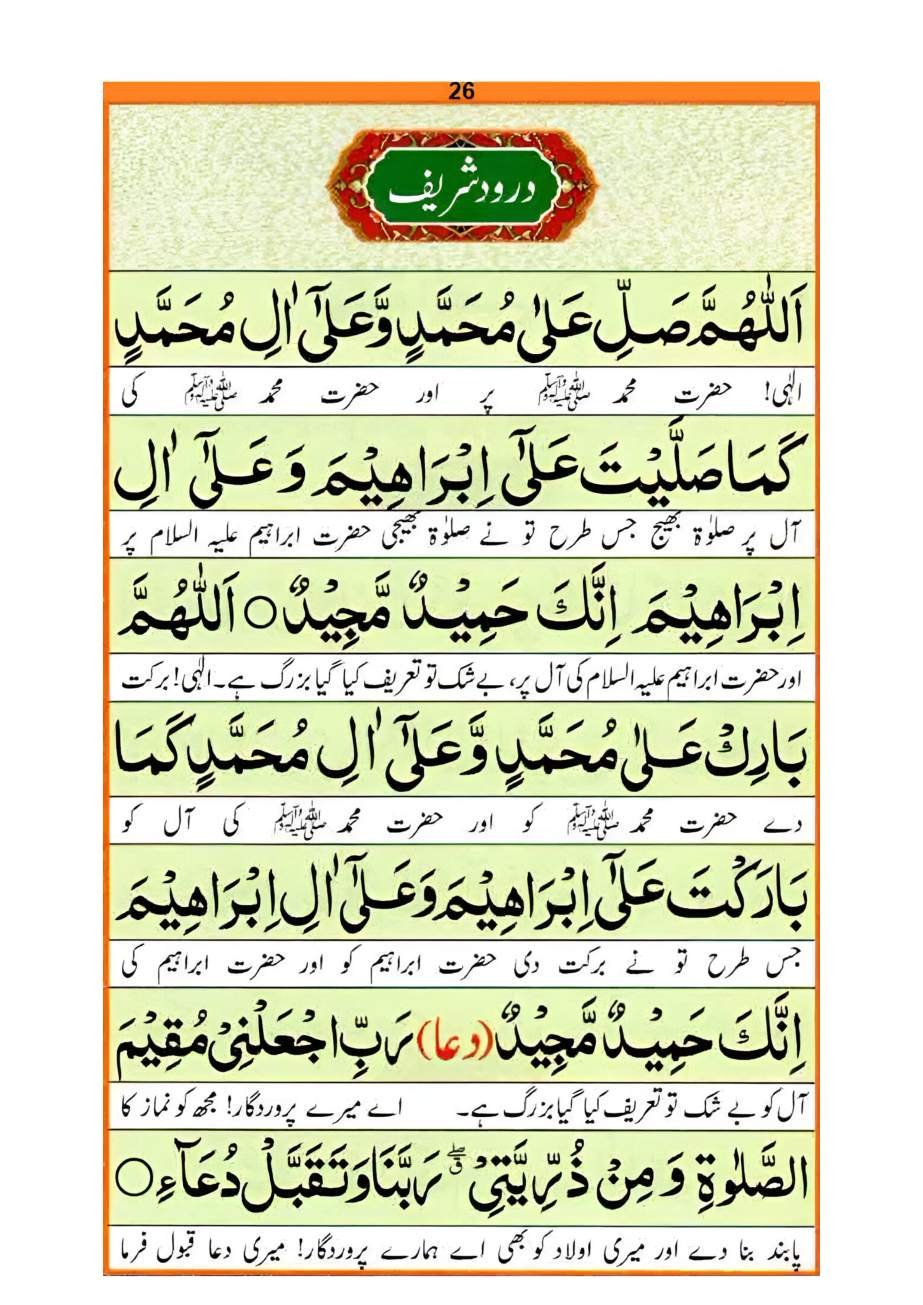 26
درود شریف
اَللّٰهُمَّ صَلِّ عَلٰی مُحَمَّدٍ وَّعَلٰۤی اٰلِ مُحَمَّدٍ
الٰہی! حضرت محمد ﷺ پر اور حضرت محمد ﷺ کی
كَمَا صَلَّیْتَ عَلٰۤی اِبْرَاهِیْمَ وَعَلٰۤی اٰلِ
آل پر صلوٰۃ بھیج جس طرح تو نے صلوٰۃ بھیجی حضرت ابراہیم علیہ السلام پر
اِبْرَاهِیْمَ اِنَّكَ حَمِیْدٌ مَّجِیْدٌ ○ اَللّٰهُمَّ
اور حضرت ابراہیم علیہ السلام کی آل پر، بے شک تو تعریف کیا گیا بزرگ ہے۔ الٰہی! برکت
بَارِكْ عَلٰی مُحَمَّدٍ وَّعَلٰۤی اٰلِ مُحَمَّدٍ كَمَا
دے حضرت محمد ﷺ کو اور حضرت محمد ﷺ کی آل کو
بَارَكْتَ عَلٰۤی اِبْرَاهِیْمَ وَعَلٰۤی اٰلِ اِبْرَاهِیْمَ
جس طرح تو نے برکت دی حضرت ابراہیم کو اور حضرت ابراہیم کی
اِنَّكَ حَمِیْدٌ مَّجِیْدٌ (دعا) رَبِّ اجْعَلْنِیْ مُقِیْمَ
آل کو بے شک تو تعریف کیا گیا بزرگ ہے۔ اے میرے پروردگار! مجھ کو نماز کا
الصَّلٰوةِ وَمِنْ ذُرِّیَّتِیْ ۖۗ رَبَّنَا وَتَقَبَّلْ دُعَآءِ ○
پابند بنا دے اور میری اولاد کو بھی اے ہمارے پروردگار! میری دعا قبول فرما